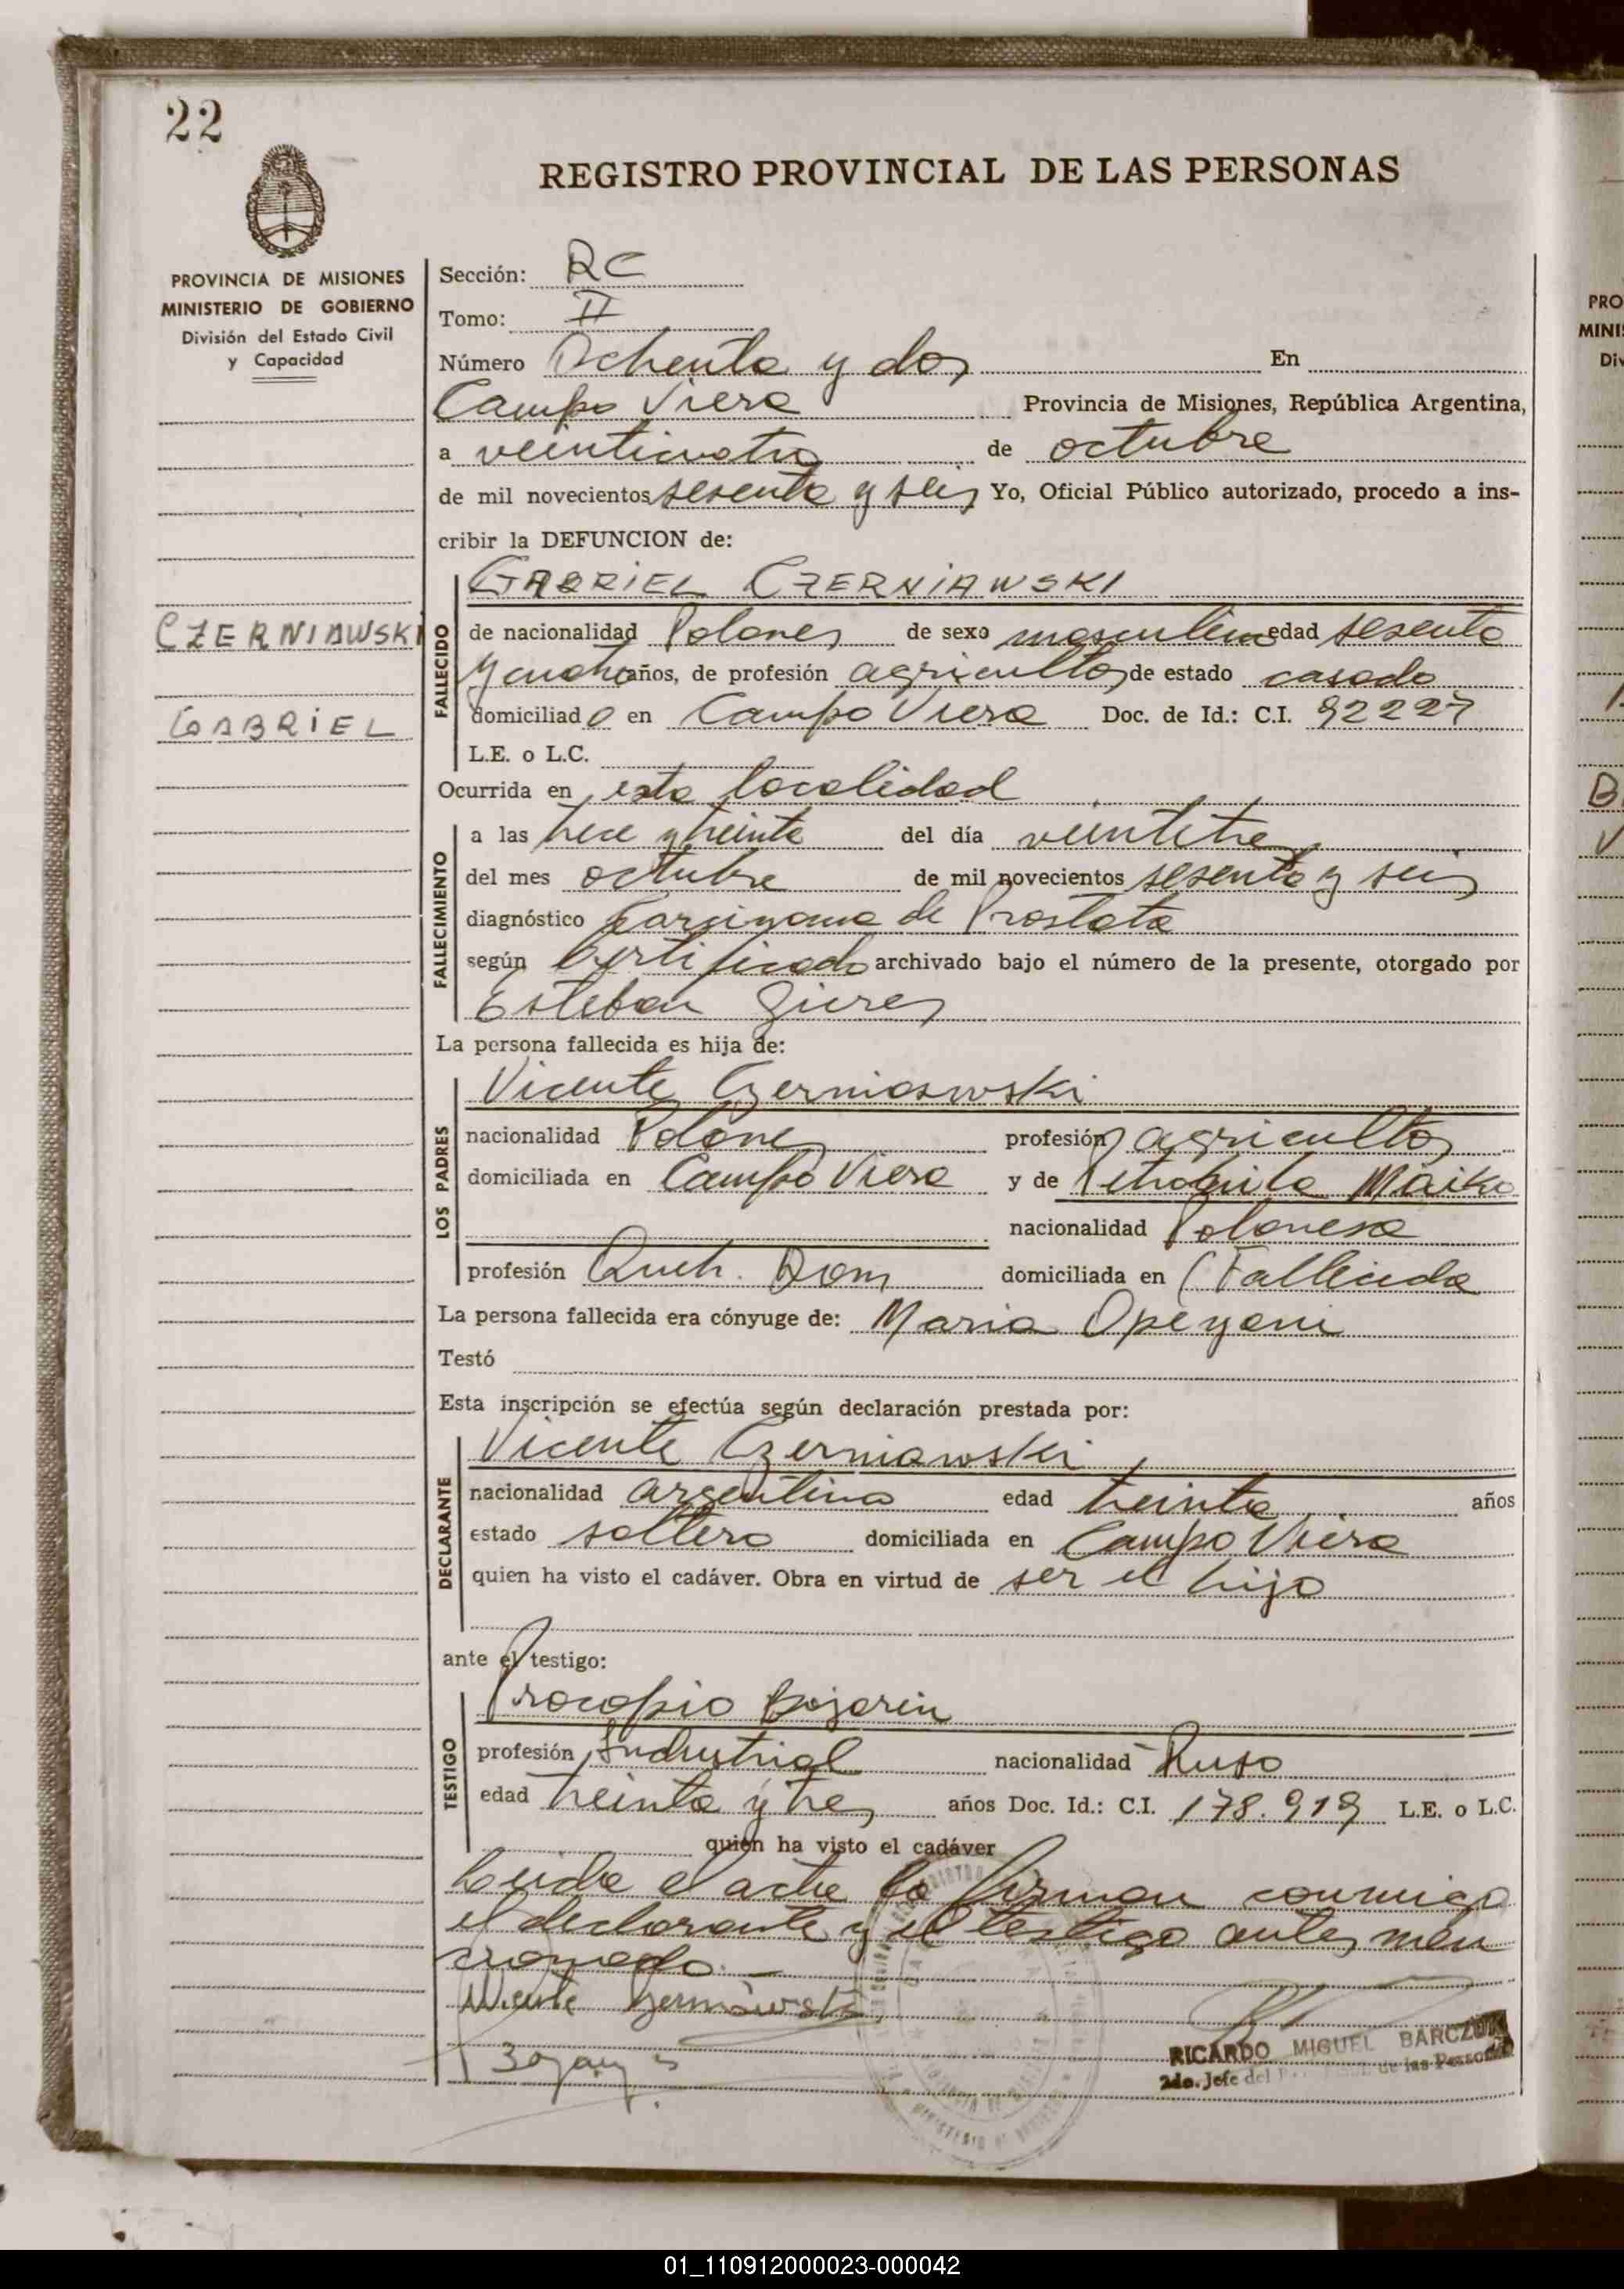 22
REGISTRO PROVINCIAL DE LAS PERSONAS
PROVINCIA DE MISIONES
MINISTERIO DE GOBIERNO
División del Estado Civil
y Capacidad
CZERNIAWSKI
GABRIEL
Sección: RC
Tomo: II
Número Ochenta y dos En
Campo Viera Provincia de Misiones, República Argentina,
a veinticuatro de octubre
de mil novecientos sesenta y seis Yo, Oficial Público autorizado, procedo a ins-
cribir la DEFUNCION de:
FALLECIDO
GABRIEL CZERNIAWSKI
de nacionalidad Polones de sexo masculino edad sesenta
y años, de profesión agricultor de estado casado
domiciliado en Campo Viera Doc. de Id.: C.I. 92227
L.E. o L.C.
Ocurrida en esta localidad
FALLECIMIENTO
a las trece y treinta del día veintitres
del mes octubre de mil novecientos sesenta y seis
diagnóstico Carcinoma de Prostata
según certificado archivado bajo el número de la presente, otorgado por
Esteban
La persona fallecida es hija de:
LOS PADRES
Vicente Czerniawski
nacionalidad Polones profesión agricultor
domiciliada en Campo Viera y de Maiko
nacionalidad Polonesa
profesión Queh. Dom domiciliada en (Fallecida
La persona fallecida era cónyuge de: Maria Opeyani
Testó
Esta inscripción se efectúa según declaración prestada por:
DECLARANTE
Vicente Czerniawski
nacionalidad argentino edad treinta años
estado soltero domiciliada en Campo Viera
quien ha visto el cadáver. Obra en virtud de ser el hijo
ante el testigo:
TESTIGO
Procopio Bojarin
profesión Industrial nacionalidad Ruso
edad treinta y tres años Doc. Id.: C.I. 178.919 L.E. o L.C.
quien ha visto el cadáver
Leida el acta la firman conmigo
el declarante y el testigo antes men
cionado.—
Vicente Czerniawski
RICARDO MIGUEL
2do. Jefe del de las
PRO
MINI
Div
01_110912000023-000042